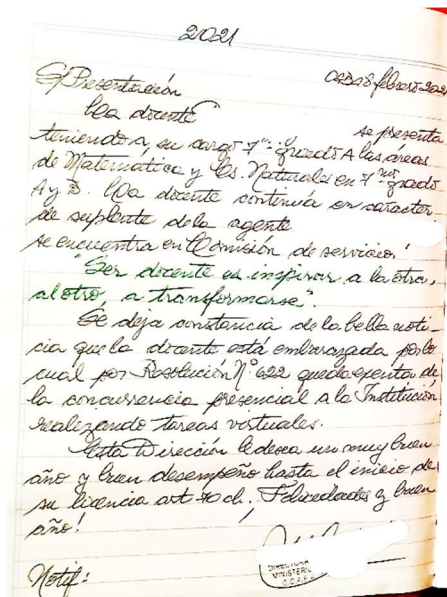 2021
S/Presentación CABA 8 febrero 2021
La docente se presenta
teniendo a su cargo 7mo grado A las áreas
de Matemática y Cs. Naturales en 7mo grado
A y B. La docente continúa en carácter
de suplente de la agente
se encuentra en Comisión de servicio.
"Ser docente es inspirar a la otra,
al otro, a transformarse".
Se deja constancia de la bella noti-
cia que la docente está embarazada por lo
cual por Resolución N° 622 queda exenta de
la concurrencia presencial a la Institución
realizando tareas virtuales.
Esta Dirección le desea un muy buen
año y buen desempeño hasta el inicio de
su licencia art 70 ch. ¡Felicidades y buen
año!
DIRECTORA
MINISTERIO
G.C.A.B.A.
Notif: